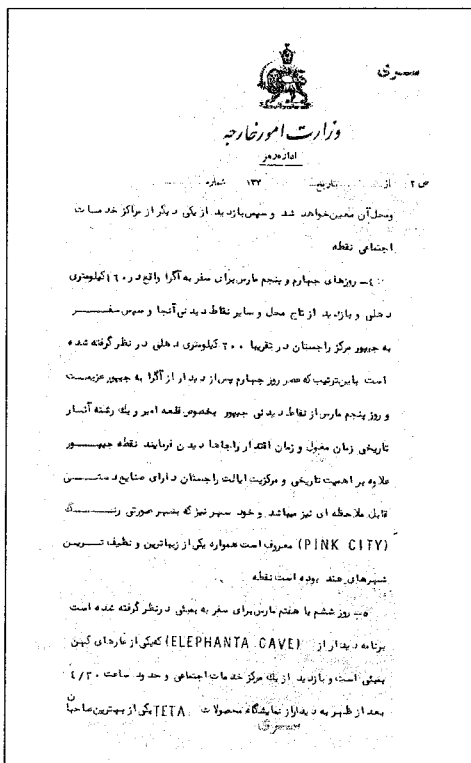 سری
وزارت امور خارجه
اداره رمز
ص ۲ از تاریخ ۱۳۲ شماره
ومحل آن معین خواهد شد و سپس بازدید از یکی دیگر از مراکز خدمات
اجتماعی نقطه
٤- روزهای چهارم و پنجم مارس برای سفر به آگرا واقع در ۱۶۰ کیلومتری
دهلی و بازدید از تاج محل و سایر نقاط دیدنی آنجا و سپس سفر
به جیپور مرکز راجستان در تقریبا ۲۰۰ کیلومتری دهلی در نظر گرفته شده
است باین ترتیب که عصر روز چهارم پس از دیدار از آگرا به جیپور عزیمت
و روز پنجم مارس از نقاط دیدنی جیپور بخصوص قلعه امبر و یک رشته آثار
تاریخی زمان مغول و زمان اقتدار راجاها دیدن فرمایند نقطه جیپور
علاوه بر اهمیت تاریخی و مرکزیت ایالت راجستان دارای صنایع دستی
قابل ملاحظه ای نیز میباشد و خود شهر نیز که بشهر صورتی رنگ
(PINK CITY) معروف است همواره یکی از زیباترین و نظیف ترین
شهرهای هند بوده است نقطه
۵- روز ششم یا هفتم مارس برای سفر به بمبئی در نظر گرفته شده است
برنامه دیدار از (ELEPHANTA CAVE) که یکی از غارهای کهن
بمبئی است و بازدید از یک مرکز خدمات اجتماعی و حدود ساعت ٤/۳۰
بعد از ظهر به دیدار از نمایشگاه محصولات TETA یکی از بهترین صاحبان
سری